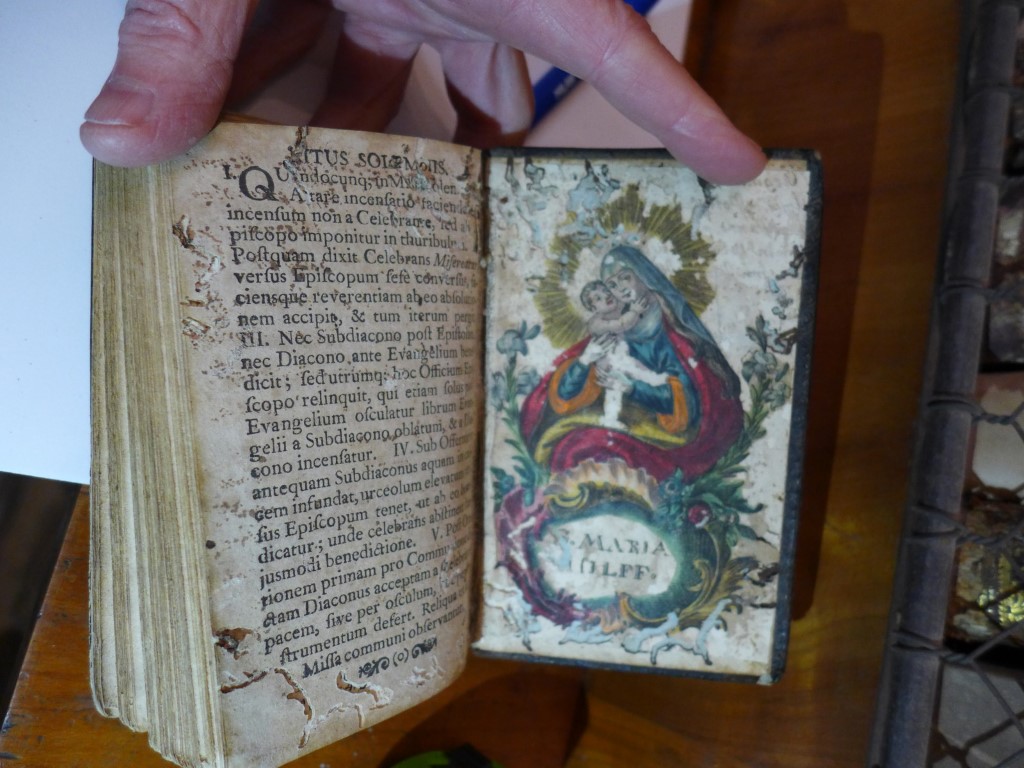 ITUS SOLEMNIS.
I. QUandocunq; in Missa solen
Altare incensatio facien
incensum non a Celebrante, sed a
piscopo imponitur in thuribul
Postquam dixit Celebrans Misere
versus Episcopum sese conversus,
ciensque reverentiam ab eo absolu
nem accipit, & tum iterum perg
III. Nec Subdiacono post Epistol
nec Diacono ante Evangelium be
dicit; sed utrumq; hoc Officium E
scopo relinquit, qui etiam solus
Evangelium osculatur librum
gelii a Subdiacono oblatum, &
cono incensatur. IV. Sub Offer
antequam Subdiaconus aquam
cem infundat, urceolum elevat
sus Episcopum tenet, ut ab eo
dicatur; unde celebrans abstin
jusmodi benedictione. V. Post
tionem primam pro Commun
ctam Diaconus acceptam a
pacem, sive per osculum,
strumentum defert. Reliqua
Missa communi observantur
(o)
S. MARIA
HILFF.